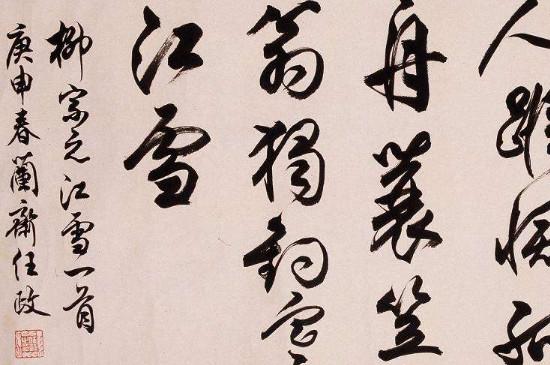 人蹤滅孤
舟蓑笠
翁獨釣寒
江雪
柳宗元江雪一首
庚申春蘭齋任政